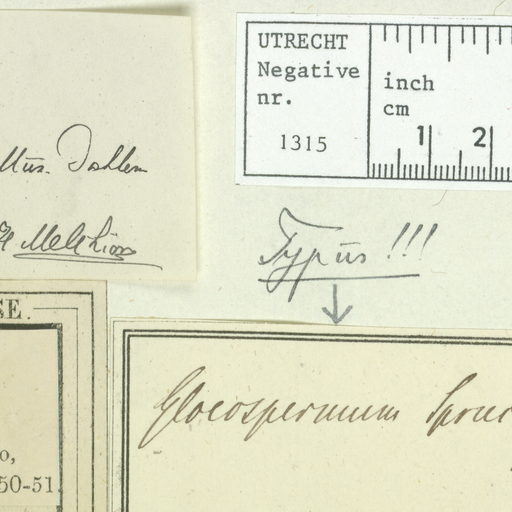 UTRECHT
Negative
nr.
1315
inch
cm
1 2
Mus. Dahlem
H Melchior
Typus !!!
SE.
o,
50-51
Gloeospermum Spruc